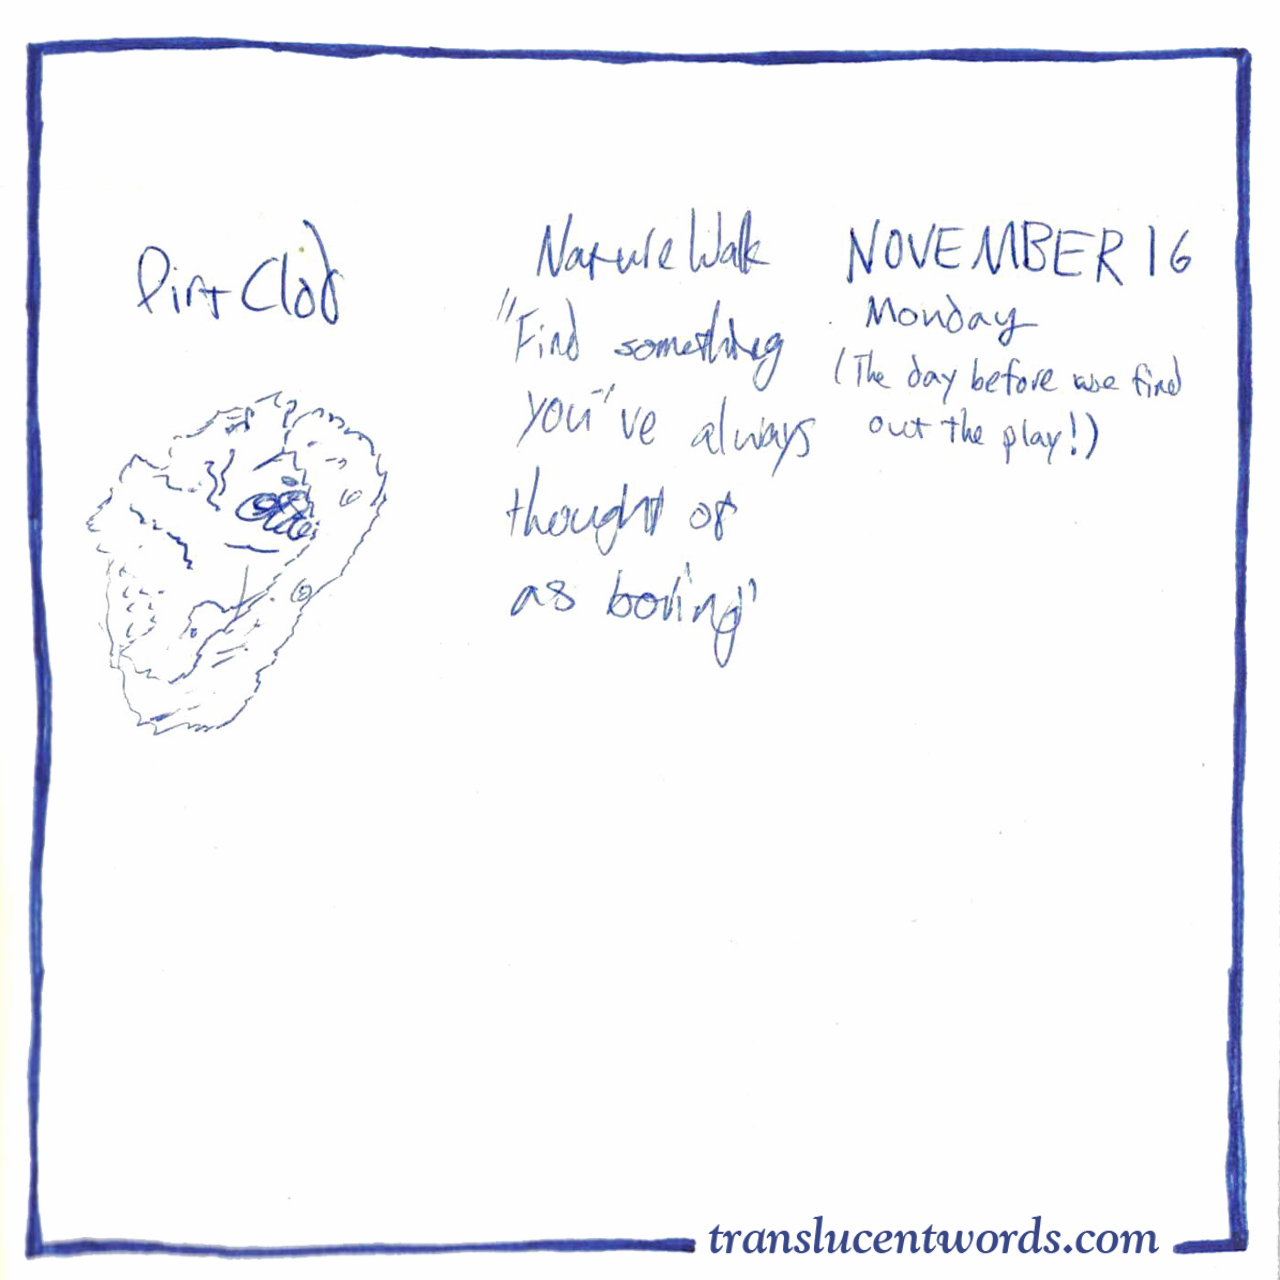 Dirt Clod
Nature Walk
"Find something
you've always
thought of
as boring"
NOVEMBER 16
Monday
(The day before we find
out the play!)
translucentwords.com